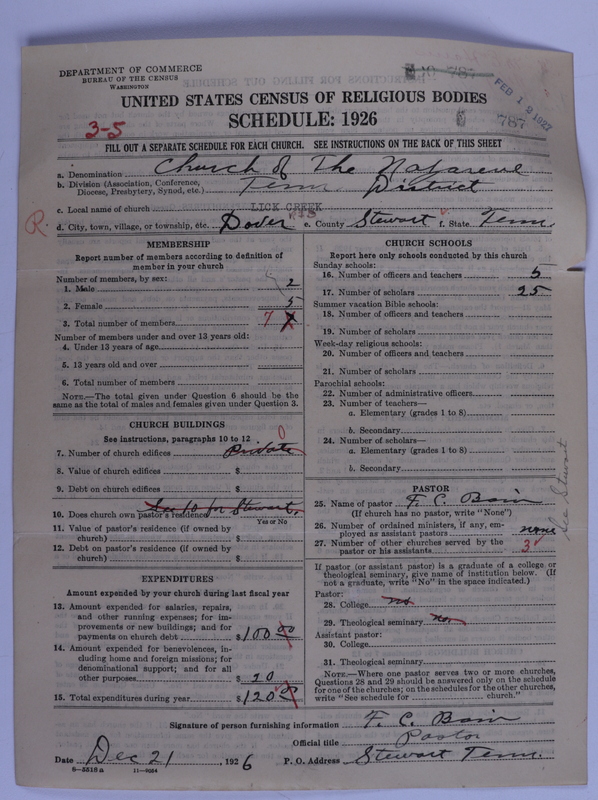 DEPARTMENT OF COMMERCE
BUREAU OF THE CENSUS
WASHINGTON
787
FEB 12 1927
787
UNITED STATES CENSUS OF RELIGIOUS BODIES
SCHEDULE: 1926
3-5
FILL OUT A SEPARATE SCHEDULE FOR EACH CHURCH. SEE INSTRUCTIONS ON THE BACK OF THIS SHEET
a. Denomination Church of The Nazarene
b. Division (Association, Conference, Diocese, Presbytery, Synod, etc.) Tenn. District
c. Local name of church LICK CREEK
R.
d. City, town, village, or township, etc. Dover e. County Stewart f. State Tenn.
MEMBERSHIP
Report number of members according to definition of
member in your church
Number of members, by sex:
1. Male 2
2. Female 5
3. Total number of members 7 7
Number of members under and over 13 years old:
4. Under 13 years of age
5. 13 years old and over
6. Total number of members
NOTE.—The total given under Question 6 should be the
same as the total of males and females given under Question 3.
CHURCH BUILDINGS
See instructions, paragraphs 10 to 12
0
7. Number of church edifices Private
8. Value of church edifices $
9. Debt on church edifices $
10. Does church own pastor's residence See 10 for Stewart,
Yes or No
11. Value of pastor's residence (if owned by
church) $
12. Debt on pastor's residence (if owned by
church) $
EXPENDITURES
Amount expended by your church during last fiscal year
13. Amount expended for salaries, repairs,
and other running expenses; for im-
provements or new buildings; and for
payments on church debt $ 100 00
14. Amount expended for benevolences, in-
cluding home and foreign missions; for
denominational support; and for all
other purposes $ 20
15. Total expenditures during year $ 120 00
CHURCH SCHOOLS
Report here only schools conducted by this church
Sunday schools:
16. Number of officers and teachers 5
17. Number of scholars 25
Summer vacation Bible schools:
18. Number of officers and teachers
19. Number of scholars
Week-day religious schools:
20. Number of officers and teachers
21. Number of scholars
Parochial schools:
22. Number of administrative officers
23. Number of teachers—
a. Elementary (grades 1 to 8)
b. Secondary
24. Number of scholars—
a. Elementary (grades 1 to 8)
b. Secondary
See Stewart
PASTOR
25. Name of pastor F. C. Bain
(If church has no pastor, write "None")
26. Number of ordained ministers, if any, em-
ployed as assistant pastors none
27. Number of other churches served by the
pastor or his assistants 3
If pastor (or assistant pastor) is a graduate of a college or
theological seminary, give name of institution below. (If
not a graduate, write "No" in the space indicated.)
Pastor:
28. College no
29. Theological seminary no
Assistant pastor:
30. College
31. Theological seminary
NOTE.—Where one pastor serves two or more churches,
Questions 28 and 29 should be answered only on the schedule
for one of the churches; on the schedules for the other churches,
write "See schedule for church."
Signature of person furnishing information F. C. Bain
Official title Pastor
Date Dec 21, 1926 P. O. Address Stewart Tenn.
8-5518 a 11-9054